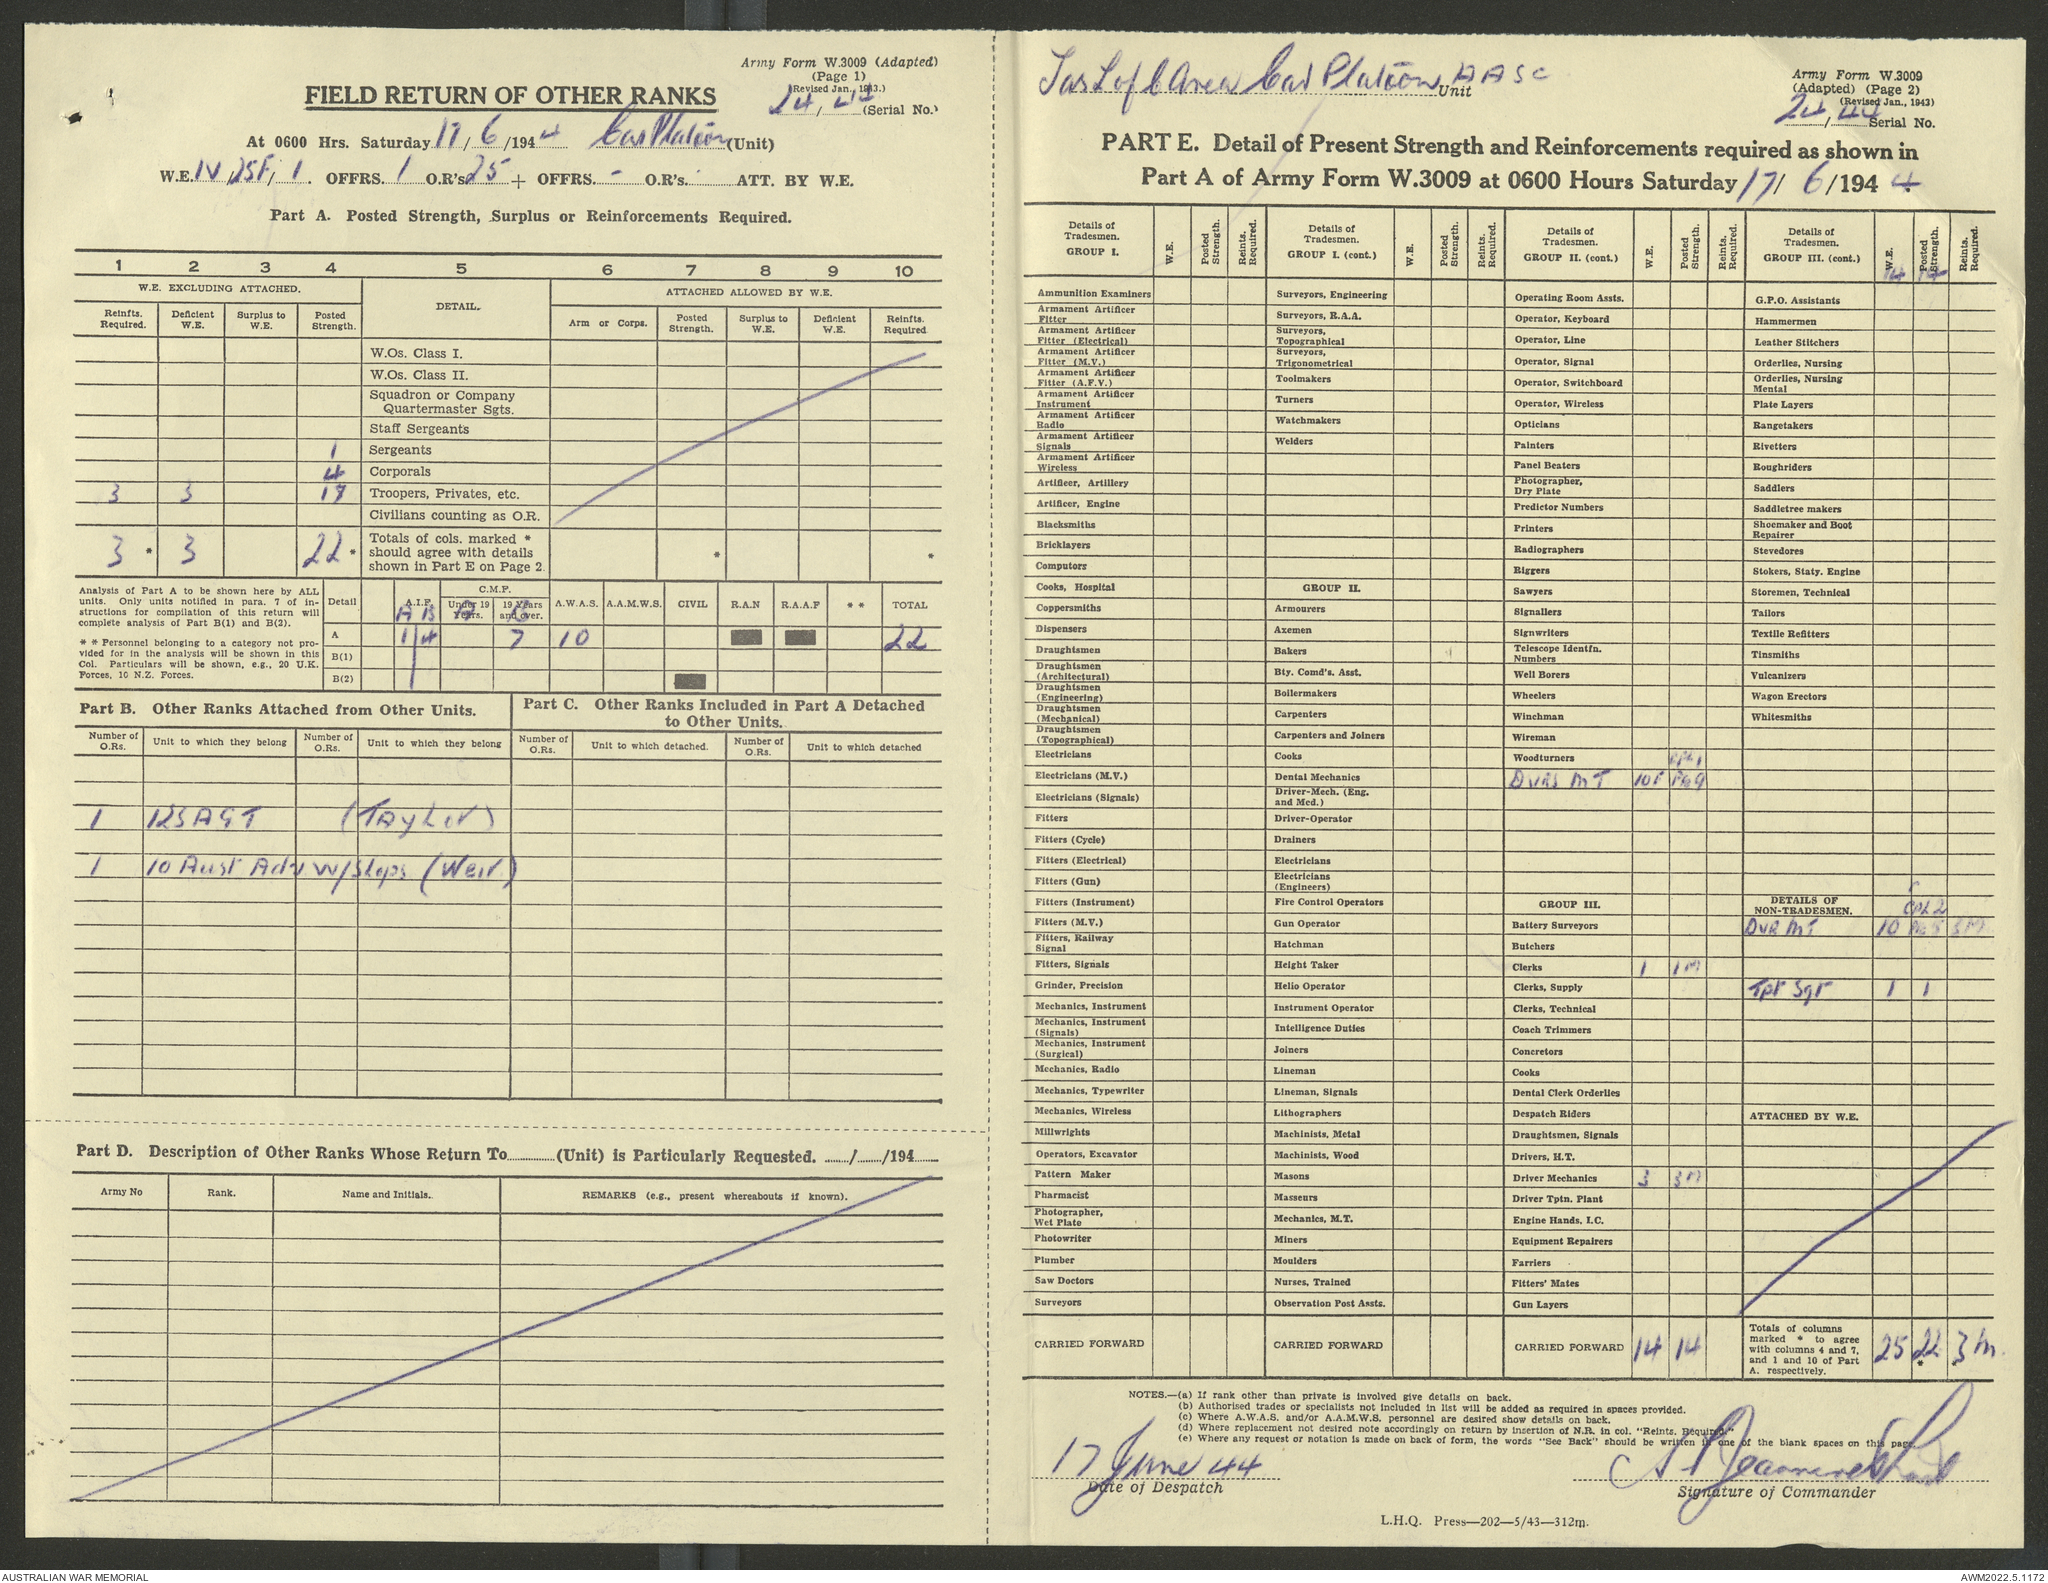 Army Form W.3009 (Adapted)
(Page 1)
(Revised Jan., 1943.)
24/44 (Serial No.)
FIELD RETURN OF OTHER RANKS
At 0600 Hrs. Saturday 17/6/1944 Car Platoon (Unit)
W.E. IV/25F/1. OFFRS. 1 O.R's 25 + OFFRS. - O.R's. ATT. BY W.E.
Part A. Posted Strength, Surplus or Reinforcements Required.
1 2 3 4 5 6 7 8 9 10
W.E. EXCLUDING ATTACHED. DETAIL. ATTACHED ALLOWED BY W.E.
Reinfts. Required. Deficient W.E. Surplus to W.E. Posted Strength. Arm or Corps. Posted Strength. Surplus to W.E. Deficient W.E. Reinfts. Required
W.Os. Class I.
W.Os. Class II.
Squadron or Company
Quartermaster Sgts.
Staff Sergeants
1 Sergeants
4 Corporals
3 3 17 Troopers, Privates, etc.
Civilians counting as O.R.
3 * 3 22 * Totals of cols. marked * * *
should agree with details
shown in Part E on Page 2.
Analysis of Part A to be shown here by ALL
units. Only units notified in para. 7 of in-
structions for compilation of this return will
complete analysis of Part B(1) and B(2).
* * Personnel belonging to a category not pro-
vided for in the analysis will be shown in this
Col. Particulars will be shown, e.g., 20 U.K.
Forces, 10 N.Z. Forces.
Detail A.I.F. C.M.F. A.W.A.S. A.A.M.W.S. CIVIL R.A.N R.A.A.F * * TOTAL
Under 19 Years. 19 Years and over.
A B A B
A 1 4 7 10 22
B(1)
B(2)
Part B. Other Ranks Attached from Other Units.
Number of O.Rs. Unit to which they belong Number of O.Rs. Unit to which they belong
1 125 AGT (Taylor)
1 10 Aust Adv W/Shops (Weir)
Part C. Other Ranks Included in Part A Detached
to Other Units.
Number of O.Rs. Unit to which detached. Number of O.Rs. Unit to which detached
Part D. Description of Other Ranks Whose Return To............(Unit) is Particularly Requested. ....../....../194......
Army No Rank. Name and Initials. REMARKS (e.g., present whereabouts if known).
Tas L of C Area Car Platoon AASC Unit
Army Form W.3009
(Adapted) (Page 2)
(Revised Jan., 1943)
24/44 Serial No.
PART E. Detail of Present Strength and Reinforcements required as shown in
Part A of Army Form W.3009 at 0600 Hours Saturday 17/6/1944
Details of Tradesmen. GROUP I. W.E. Posted Strength. Reints. Required.
Ammunition Examiners
Armament Artificer Fitter
Armament Artificer Fitter (Electrical)
Armament Artificer Fitter (M.V.)
Armament Artificer Fitter (A.F.V.)
Armament Artificer Instrument
Armament Artificer Radio
Armament Artificer Signals
Armament Artificer Wireless
Artificer, Artillery
Artificer, Engine
Blacksmiths
Bricklayers
Computors
Cooks, Hospital
Coppersmiths
Dispensers
Draughtsmen
Draughtsmen (Architectural)
Draughtsmen (Engineering)
Draughtsmen (Mechanical)
Draughtsmen (Topographical)
Electricians
Electricians (M.V.)
Electricians (Signals)
Fitters
Fitters (Cycle)
Fitters (Electrical)
Fitters (Gun)
Fitters (Instrument)
Fitters (M.V.)
Fitters, Railway Signal
Fitters, Signals
Grinder, Precision
Mechanics, Instrument
Mechanics, Instrument (Signals)
Mechanics, Instrument (Surgical)
Mechanics, Radio
Mechanics, Typewriter
Mechanics, Wireless
Millwrights
Operators, Excavator
Pattern Maker
Pharmacist
Photographer, Wet Plate
Photowriter
Plumber
Saw Doctors
Surveyors
CARRIED FORWARD
Details of Tradesmen. GROUP I. (cont.) W.E. Posted Strength. Reints. Required.
Surveyors, Engineering
Surveyors, R.A.A.
Surveyors, Topographical
Surveyors, Trigonometrical
Toolmakers
Turners
Watchmakers
Welders
GROUP II.
Armourers
Axemen
Bakers
Bty. Comd's. Asst.
Boilermakers
Carpenters
Carpenters and Joiners
Cooks
Dental Mechanics
Driver-Mech. (Eng. and Med.)
Driver-Operator
Drainers
Electricians
Electricians (Engineers)
Fire Control Operators
Gun Operator
Hatchman
Height Taker
Helio Operator
Instrument Operator
Intelligence Duties
Joiners
Lineman
Lineman, Signals
Lithographers
Machinists, Metal
Machinists, Wood
Masons
Masseurs
Mechanics, M.T.
Miners
Moulders
Nurses, Trained
Observation Post Assts.
CARRIED FORWARD
Details of Tradesmen. GROUP II. (cont.) W.E. Posted Strength. Reints. Required.
Operating Room Assts.
Operator, Keyboard
Operator, Line
Operator, Signal
Operator, Switchboard
Operator, Wireless
Opticians
Painters
Panel Beaters
Photographer, Dry Plate
Predictor Numbers
Printers
Radiographers
Riggers
Sawyers
Signallers
Signwriters
Telescope Identfn. Numbers
Well Borers
Wheelers
Winchman
Wireman
Woodturners CPL 1
DVRS MT 10F Pte 9
GROUP III.
Battery Surveyors
Butchers
Clerks 1 1M
Clerks, Supply
Clerks, Technical
Coach Trimmers
Concretors
Cooks
Dental Clerk Orderlies
Despatch Riders
Draughtsmen, Signals
Drivers, H.T.
Driver Mechanics 3 3M
Driver Tptn. Plant
Engine Hands, I.C.
Equipment Repairers
Farriers
Fitters' Mates
Gun Layers
CARRIED FORWARD 14 14
Details of Tradesmen. GROUP III. (cont.) W.E. Posted Strength. Reints. Required.
14 14
G.P.O. Assistants
Hammermen
Leather Stitchers
Orderlies, Nursing
Orderlies, Nursing Mental
Plate Layers
Rangetakers
Rivetters
Roughriders
Saddlers
Saddletree makers
Shoemaker and Boot Repairer
Stevedores
Stokers, Staty. Engine
Storemen, Technical
Tailors
Textile Refitters
Tinsmiths
Vulcanizers
Wagon Erectors
Whitesmiths
DETAILS OF NON-TRADESMEN. CPL 2
DVR MT 10 Pte 5 3M
Tpt Sgt 1 1
ATTACHED BY W.E.
Totals of columns
marked * to agree
with columns 4 and 7,
and 1 and 10 of Part
A. respectively.
25 22 * 3 M. *
NOTES.—(a) If rank other than private is involved give details on back.
(b) Authorised trades or specialists not included in list will be added as required in spaces provided.
(c) Where A.W.A.S. and/or A.A.M.W.S. personnel are desired show details on back.
(d) Where replacement not desired note accordingly on return by insertion of N.R. in col. "Reints. Required."
(e) Where any request or notation is made on back of form, the words "See Back" should be written in one of the blank spaces on this page.
17 June 44
Date of Despatch
Signature of Commander
L.H.Q. Press—202—5/43—312m.
AUSTRALIAN WAR MEMORIAL
AWM2022.5.1172